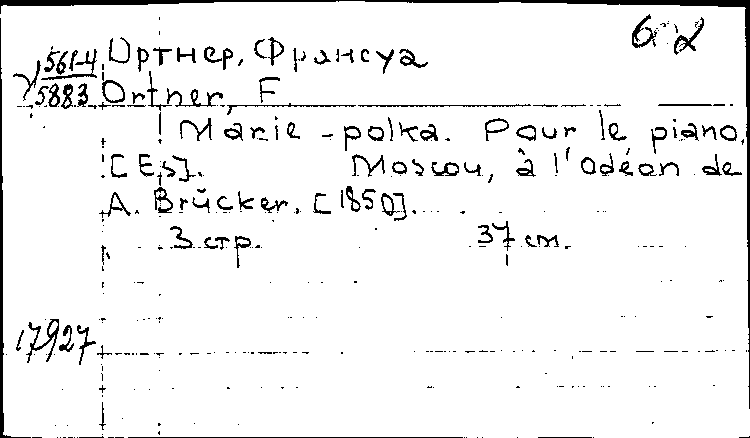 Ортнер, Франсуа
561-4
5883 Ortner, F.
Marie-polka. Pour le piano.
[Es]. Moscou, à l'Odéon de
A. Brücker. [1850].
3 стр. 37 см.
17927